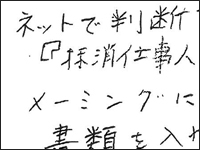 ネットで判断
『抹消仕事人
メーミングに
書類を入れ